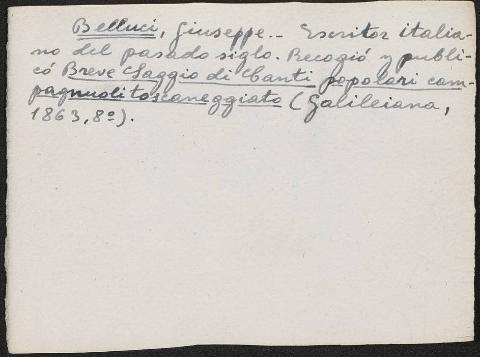 Belluci, Giuseppe.- Escritor italia-
no del pasado siglo. Recogió y publi-
có Breve Saggio di Canti popolari cam-
pagnuoli toscaneggiato (Galileiana,
1863, 8º).